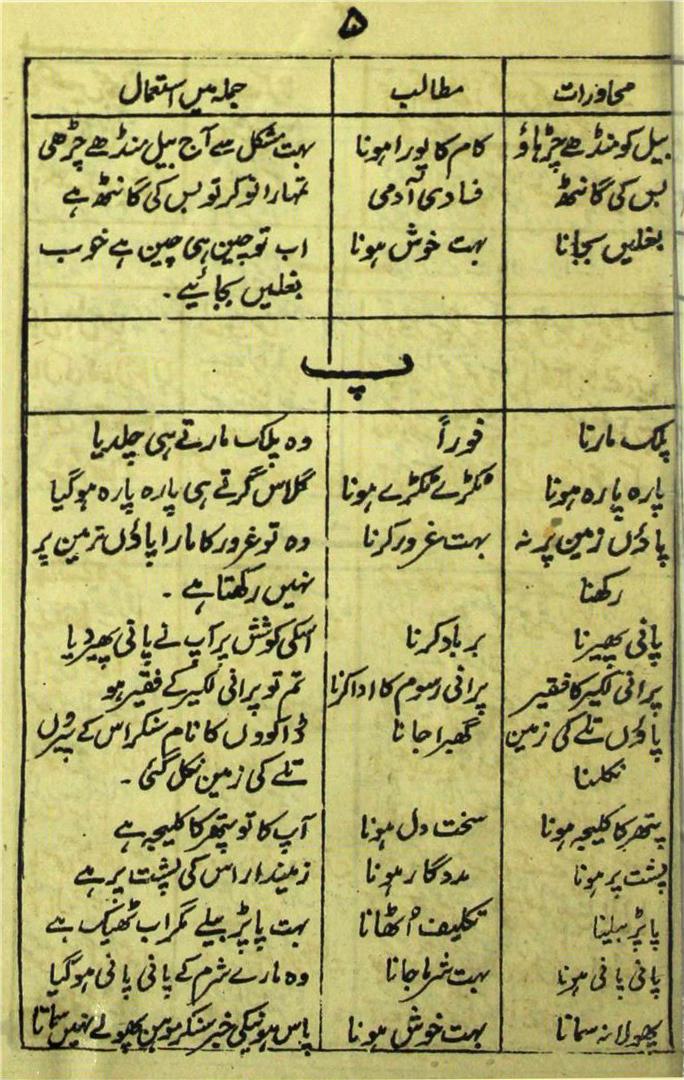 ۵
محاورات مطالب جملہ میں استعمال
بیل کو منڈھے چڑھاؤ کام کا پورا ہونا بہت مشکل سے آج بیل منڈھے چڑھی
بس کی گانٹھ فسادی آدمی تمہارا نوکر تو بس کی گانٹھ ہے
بغلیں بجانا بہت خوش ہونا اب تو چین ہی چین ہے خوب
بغلیں بجائیے۔
پ
پلک مارنا فوراً وہ پلک مارتے ہی چلدیا
پارہ پارہ ہونا ٹکڑے ٹکڑے ہونا گلاس گرتے ہی پارہ پارہ ہوگیا
پاؤں زمین پر نہ بہت غرور کرنا وہ تو غرور کا مارا پاؤں زمین پر
رکھنا نہیں رکھتا ہے۔
پانی پھیرنا برباد کرنا اسکی کوشش پر آپ نے پانی پھیر دیا
پرانی لکیر کا فقیر پرانی رسوم کا ادا کرنا تم تو پرانی لکیر کے فقیر ہو
پاؤں تلے کی زمین گھبرا جانا ڈاکووں کا نام سنکر اس کے پیروں
نکلنا تلے کی زمین نکل گئی۔
پتھر کا کلیجہ ہونا سخت دل ہونا آپ کا تو پتھر کا کلیجہ ہے
پشت پر ہونا مددگار ہونا زمیندار اس کی پشت پر ہے
پاپڑ بیلنا تکلیف اُٹھانا بہت پاپڑ بیلے مگر اب ٹھیک ہے
پانی پانی ہونا بہت شرما جانا وہ مارے شرم کے پانی پانی ہوگیا
پھولا نہ سمانا بہت خوش ہونا پاس ہونیکی خبر سنکر موہن پھولے نہیں سماتا